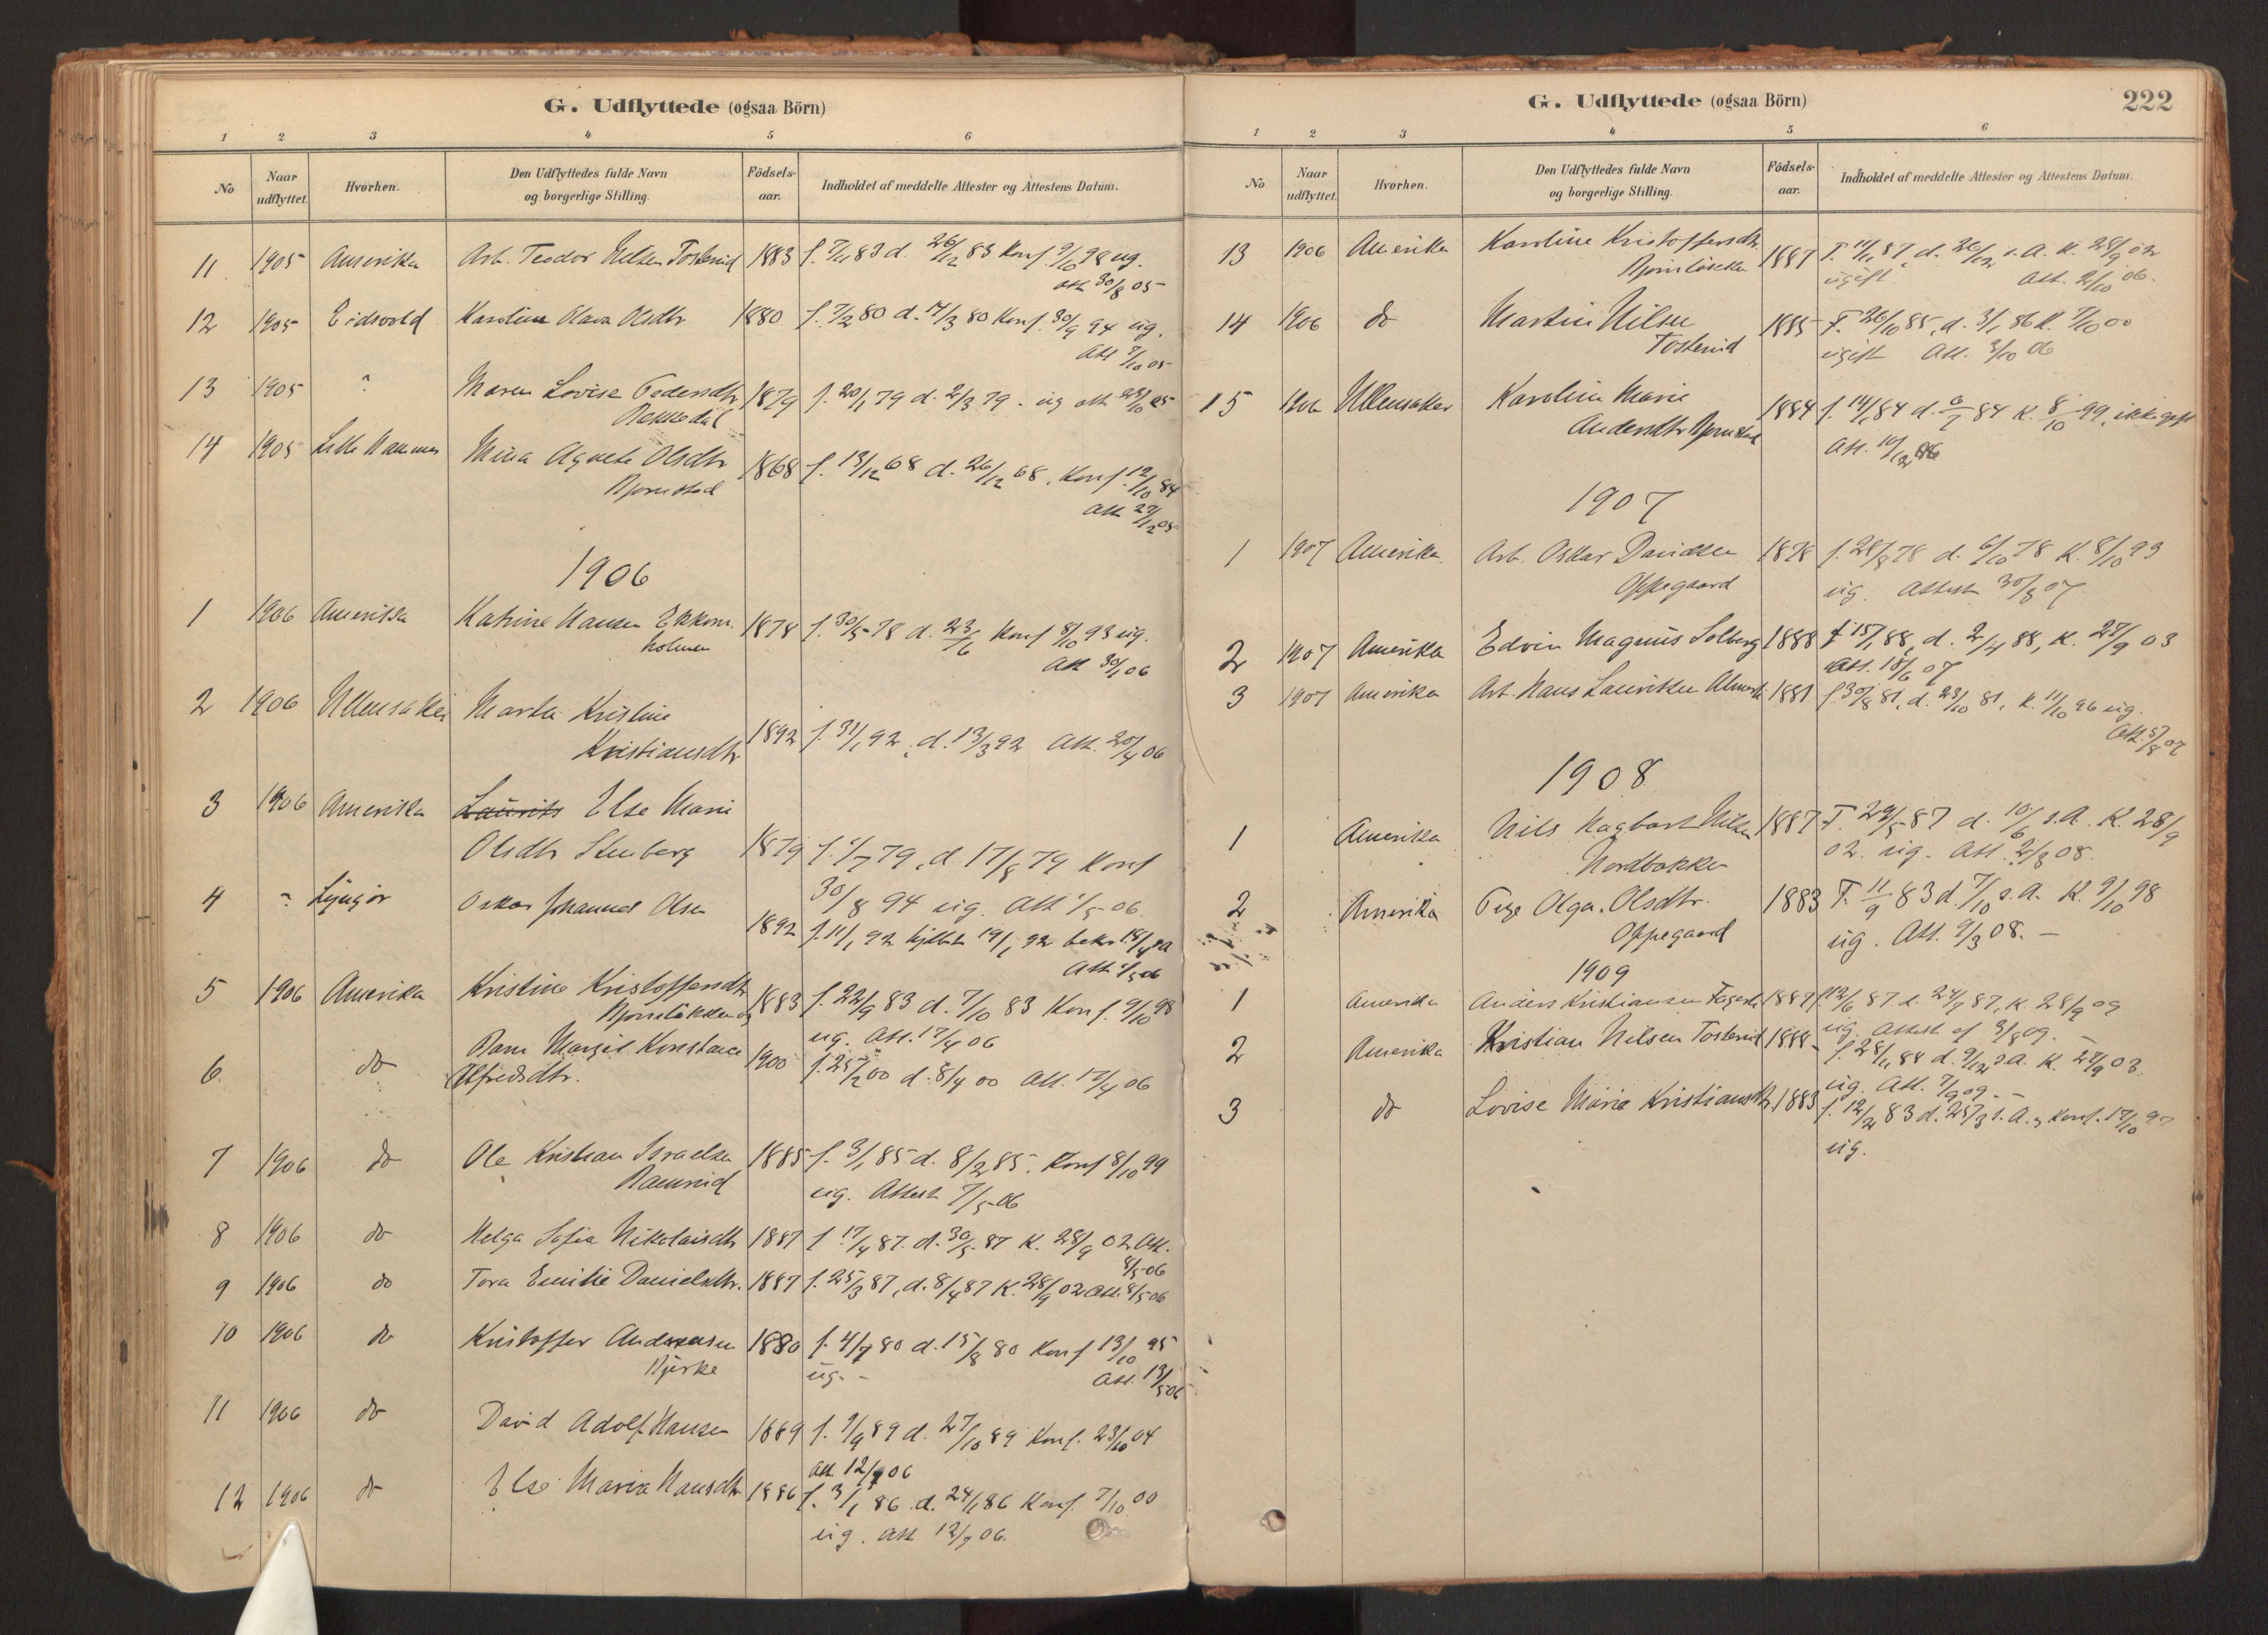 G. Udflyttede (ogsaa Börn)
1 2 3 4 5 6
No Naar udflyttet. Hvorhen. Den Udflyttedes fulde Navn og borgerlige Stilling. Födsels-aar. Indholdet af meddelte Attester og Attestens Datum.
11 1905 Amerika Arb. Teodor Nilsen Tosterud 1883 f. 7/11 83 d. 26/12 83 Konf. 9/10 98 ug.
att 30/8 05
12 1905 Eidsvold Karoline Olava Olsdtr 1880 f. 7/2 80 d. 14/3 80 Konf. 30/9 94 ug.
Att 7/10 05
13 1905 " Maren Lovise Pedersdtr 1879 f. 20/1 79 d. 2/3 79 - ug att 28/10 05
Bakkedal
14 1905 Lille Hammer Mina Agnete Olsdtr 1868 f. 13/12 68 d. 26/12 68. Konf. 12/10 84
Bjørnstad
att 27/12 05
1906
1 1906 Amerika Katrine Hansen Ekorn- 1878 f. 30/5 78 d. 23/6 Konf 8/10 93 ug.
holmen
Att 30/1 06
2 1906 Ullensaker Marta Kristine
Kristiansdtr 1892 f. 31/1 92, d. 13/3 92 Att. 20/4 06
3 1906 Amerika Laurits Else Marie
Olsdtr Stenberg 1879 f. 1/7 79, d. 17/8 79 Konf
30/8 94 ug. Att 1/5 06.
4 " Lyngør Oskar Johannes Olsen
1892 f. 11/1 92 hjdbt 19/1 92 bekr 18/4 92
Att 1/5 06
5 1906 Amerika Kristine Kristoffersdtr 1883 f. 22/9 83 d. 7/10 83 Konf. 9/10 98
Bjørnløkken og
ug. Att. 17/4 06
6 do Barn Margit Konstance 1900 f. 25/2 00 d. 8/4 00 Att. 17/4 06
Alfredsdtr.
7 1906 do Ole Kristian Israelsen 1885 f. 3/1 85 d. 8/2 85. Konf 8/10 99
Ramrud
ug. Attest 7/5 06
8 1906 do Helga Sofia Nikolaisdtr 1887 f. 17/4 87. d. 30/5 87 K. 28/9 02 Att.
8/5 06
9 1906 do Tora Emilie Danielsdtr. 1887 f. 25/3 87, d. 8/4 87 K. 28/9 02 att. 8/5 06
10 1906 do Kristoffer Andersen 1880 f. 4/7 80 d. 15/8 80 Konf 13/10 95
Bjerke
ug. - Att. 13/5 06
11 1906 do David Adolf Hansen 1889 f. 1/9 89 d. 27/10 89 Konf. 23/10 04
att 12/9 06
12 1906 do Else Maria Hansdtr 1886 f. 3/1 86. d. 24/1 86 Konf. 7/10 00
ug. att 12/9 06.
G. Udflyttede (ogsaa Börn)
222
1 2 3 4 5 6
No Naar udflyttet. Hvorhen. Den Udflyttedes fulde Navn og borgerlige Stilling. Födsels-aar. Indholdet af meddelte Attester og Attestens Datum.
13 1906 Amerika Karoline Kristoffersdtr. 1887 F. 14/11 87, d. 26/12 s.A. K. 28/9 02
Bjørnløkken
ugift. Att. 2/10 06.
14 1906 do Martin Nilsen 1885 F. 26/10 85, d. 3/1 86 K. 7/10 00
Tosterud
ugift Att. 3/10 06
15 1906 Ullensaker Karoline Marie 1884 f. 14/1 84 d. 6/7 84 K. 8/10 99, ikke gift
Andersdtr Bjørnstad
Att. 10/12 06
1907
1 1907 Amerika Arb. Oskar Davidsen 1878 f. 28/8 78 d. 6/10 78 K. 8/10 93
Oppegaard
ug. Attest 30/3 07
2 1907 Amerika Edvin Magnus Solberg 1888 f. 15/1 88, d. 2/4 88, K. 27/9 03
Att. 18/6 07
3 1907 Amerika Arb. Hans Lauritsen 1881 f. 30/8 81, d. 23/10 81, K. 11/10 96 ug.
Att. 5/8 07
1908
1 Amerika Nils Hagbart Nilsen 1887 F. 29/5 87 d. 10/6 s.A. K. 28/9
Nordbakken
02. ug. Att. 2/3 08.
2 Amerika Olga Olsdtr. 1883 F. 11/9 83 d. 7/10 s.A. K. 9/10 98
Oppegaard
ug. Att. 9/3 08. -
1909
1 Amerika Anders Kristiansen 1887 f. 12/6 87 d. 24/7 87, K. 28/9 09
ug. Attest af 3/8 09.
2 Amerika Kristian Nilsen Tosterud 1888 f. 28/11 88 d. 9/12 s.A. K. 27/9 03.
ug. Att. 7/9 09. -
3 do Lovise Marie Kristiansdtr. 1883 f. 12/2 83 d. 25/3 s.A., Konf. 17/10 97
ug.